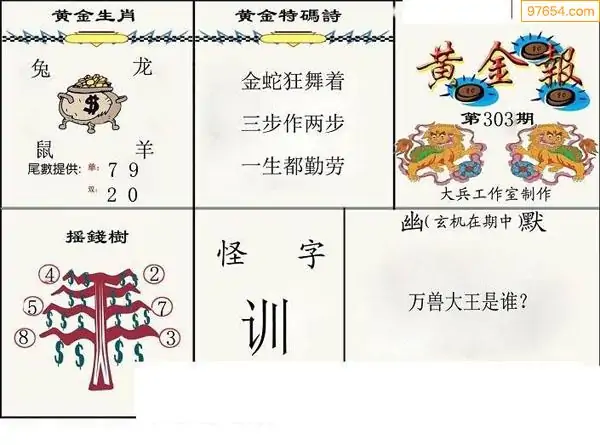 97654.com
黄金生肖
兔 龙
$
鼠 羊
尾數提供: 单: 7 9
双: 2 0
黄金特碼詩
金蛇狂舞着
三步作两步
一生都勤劳
黄金報
第303期
大兵工作室制作
摇錢樹
④ ②
⑤ ⑦
⑧ ③
$ $ $ $ $ $ $ $ $ $
怪 字
训
幽(玄机在期中)默
万兽大王是谁?